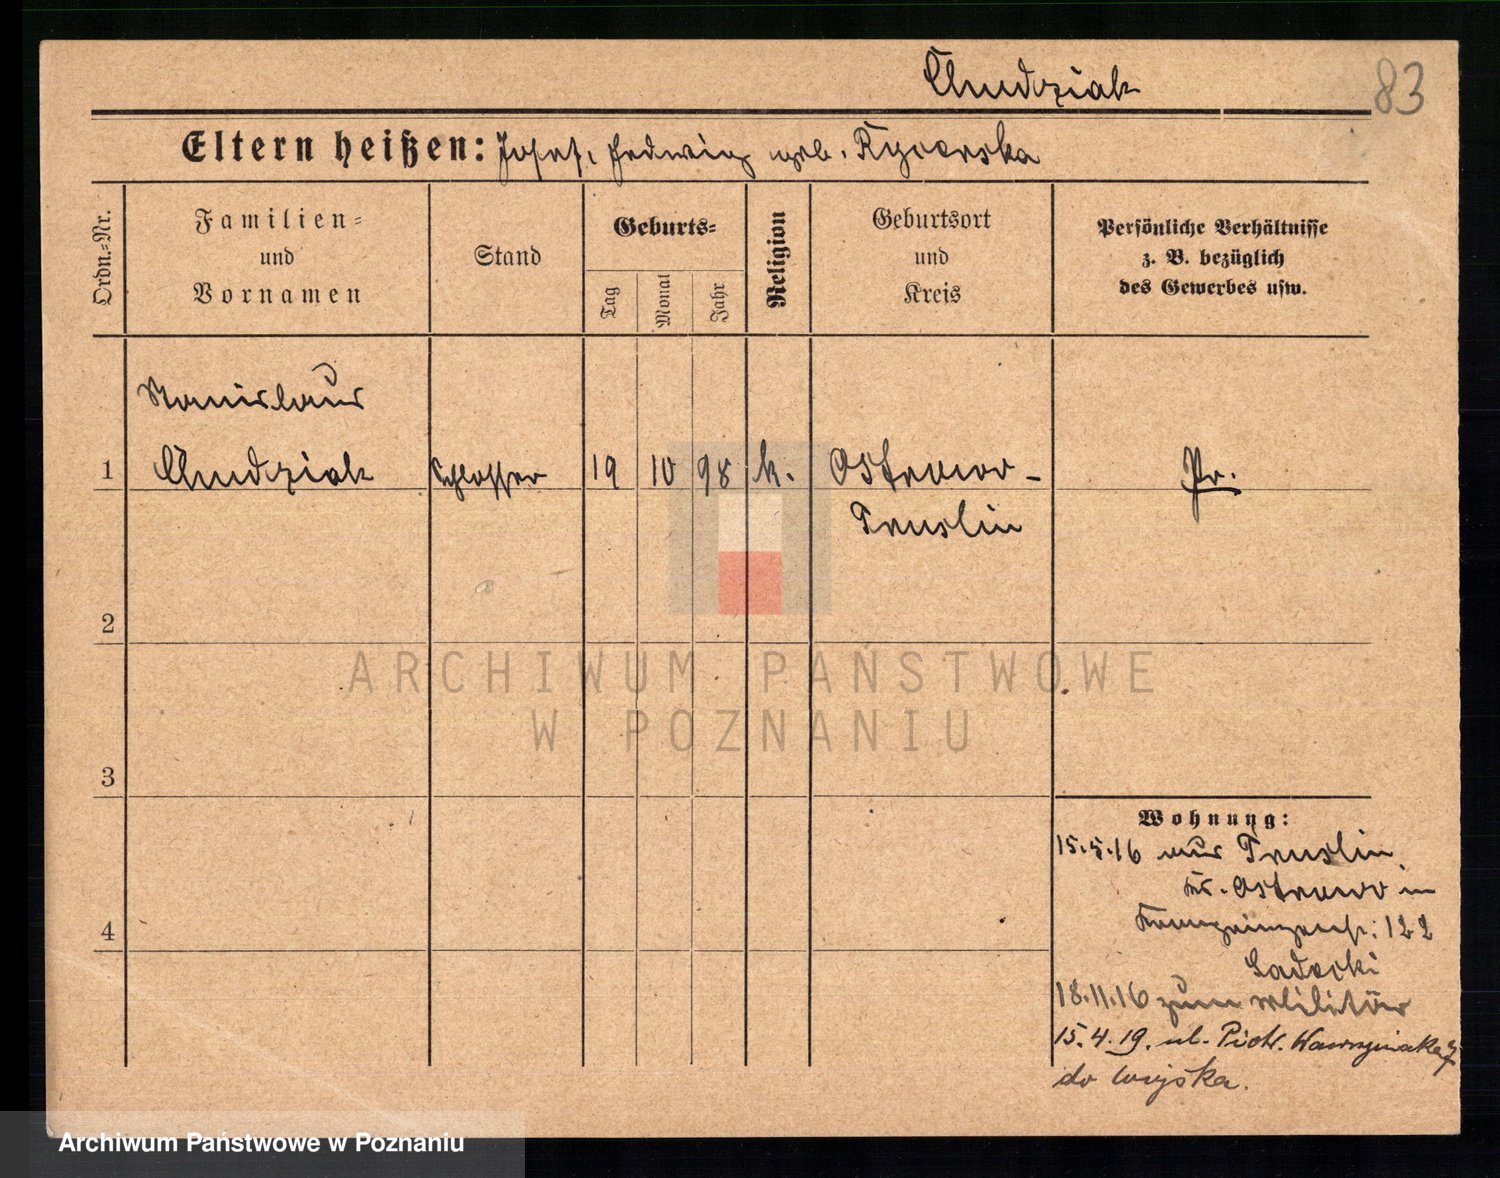 Chudziak
83
Eltern heißen: Josef, Hedwig geb. Kycerska
Ordn.-Nr.
Familien-
und
Vornamen
Stand
Geburts-
Tag
Monat
Jahr
Religion
Geburtsort
und
Kreis
Persönliche Verhältnisse
z. B. bezüglich
des Gewerbes usw.
Stanislaus
1 Chudziak Schlosser 19 10 98 k. Ostrowo- Pr.
Gruslin
2
3
4
Wohnung:
15.5.16 aus Gruslin
Kr. Ostrowo in
Kronprinzenstr. 122
Sadocki
18.11.16 zum Militär
15.4.19. ul. Piotr. Wawrzyniaka 7
do wojska.
ARCHIWUM PAŃSTWOWE
W POZNANIU
Archiwum Państwowe w Poznaniu